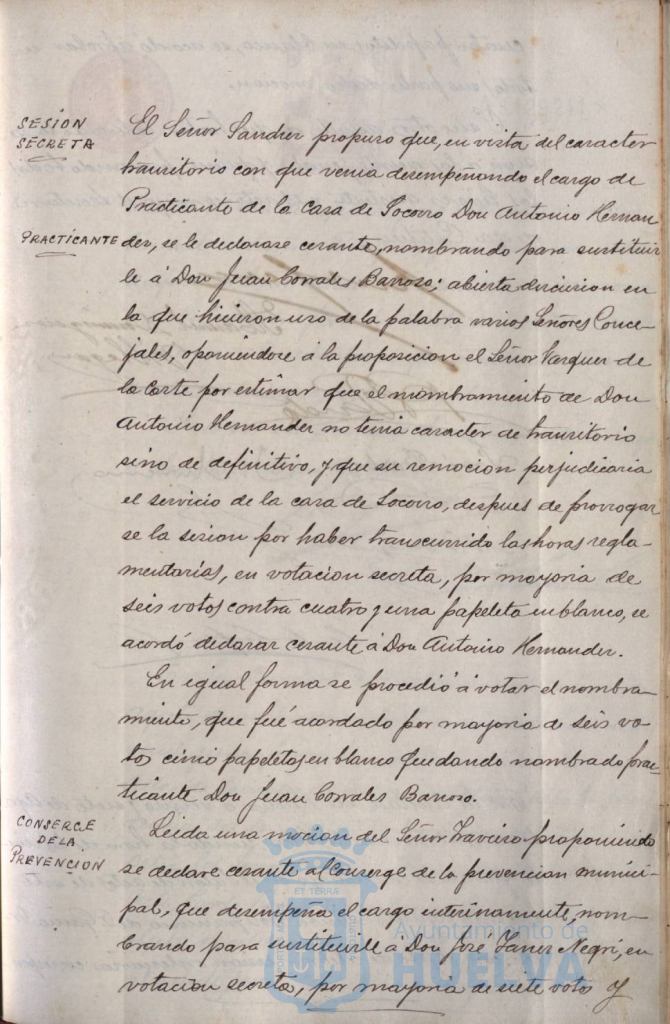 SESION
SECRETA
El Señor Sanchez propuso que, en vista del caracter
transitorio con que venia desempeñando el cargo de
Practicante de la Casa de Socorro Don Antonio Hernan
PRACTICANTE
dez, se le declarase cesante, nombrando para sustituir
le á Don Juan Corrales Barroso; abierta discusion en
la que hicieron uso de la palabra varios Señores Conce-
jales, oponiendose á la proposicion el Señor Vazquez de
la Corte por estimar que el nombramiento de Don
Antonio Hernandez no tenia caracter de transitorio
sino de definitivo, y que su remocion perjudicaria
el servicio de la casa de Socorro, despues de prorrogar
se la sesion por haber transcurrido las horas regla-
mentarias, en votacion secreta, por mayoria de
seis votos contra cuatro y una papeleta en blanco, se
acordó declarar cesante á Don Antonio Hernandez.
En igual forma se procedió á votar el nombra-
miento, que fué acordado por mayoria de seis vo-
tos cinco papeletas en blanco quedando nombrado prac-
ticante Don Juan Corrales Barroso.
CONSERGE
DE LA
PREVENCION
Leida una mocion del Señor proponiendo
se declare cesante al Conserge de la prevencion munici-
pal, que desempeña el cargo interinamente, nom-
brando para sustituirle á Don José Negri, en
votacion secreta, por mayoria de siete votos y
ET TERRÆ
Ayuntamiento de
HUELVA